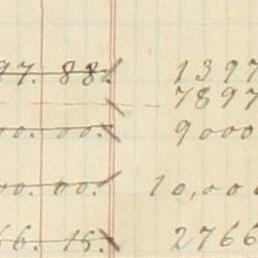 97. 88. 1397
7897
00. 00. 9000
00. 00. 10,000
66. 15. 2766